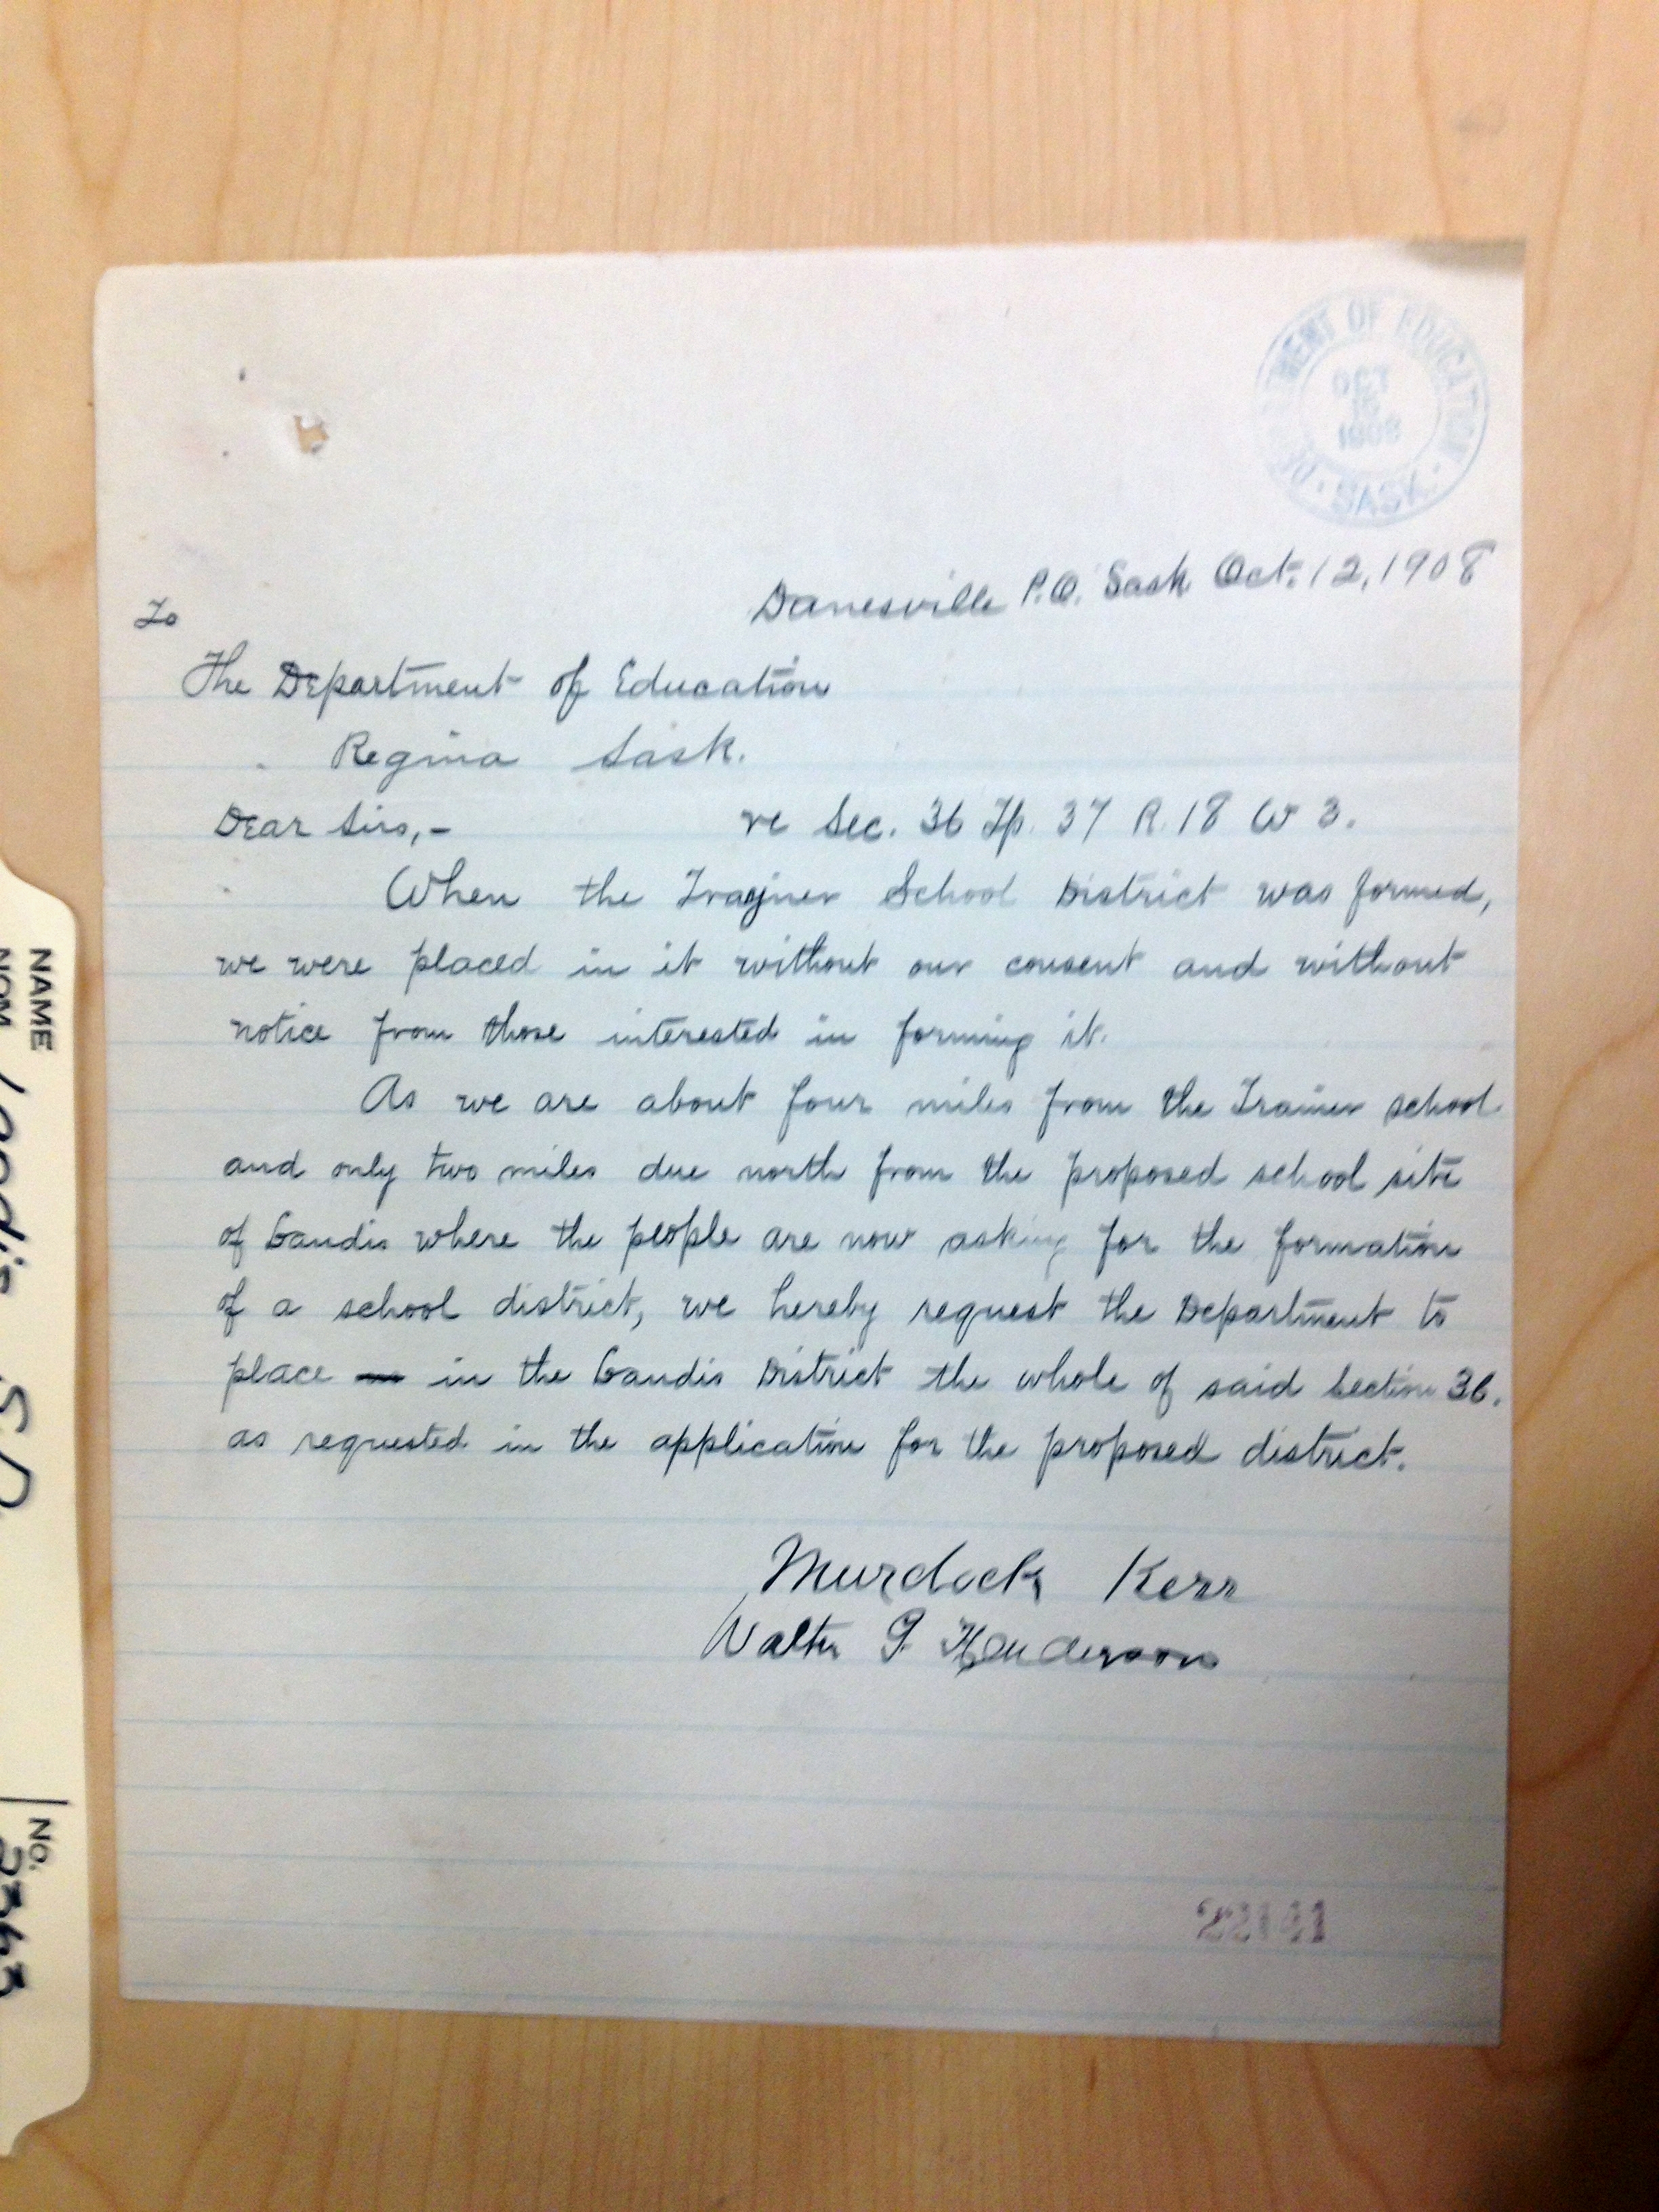 MENT OF EDUCATION
OCT
1908
SASK.
Danesville P.O. Sask Oct. 12, 1908
To
The Department of Education
Regina Sask.
Dear Sirs,- re Sec. 36 Tp. 37 R. 18 W 3.
When the School District was formed,
we were placed in it without our consent and without
notice from those interested in forming it.
As we are about four miles from the Trainer school
and only two miles due north from the proposed school site
of Landis where the people are now asking for the formation
of a school district, we hereby request the Department to
place in the Landis District the whole of said Section 36.
as requested in the application for the proposed district.
Murdock Kerr
Walter G Henderson
22141
NAME
NOM Landis S.D.
NO.
2363